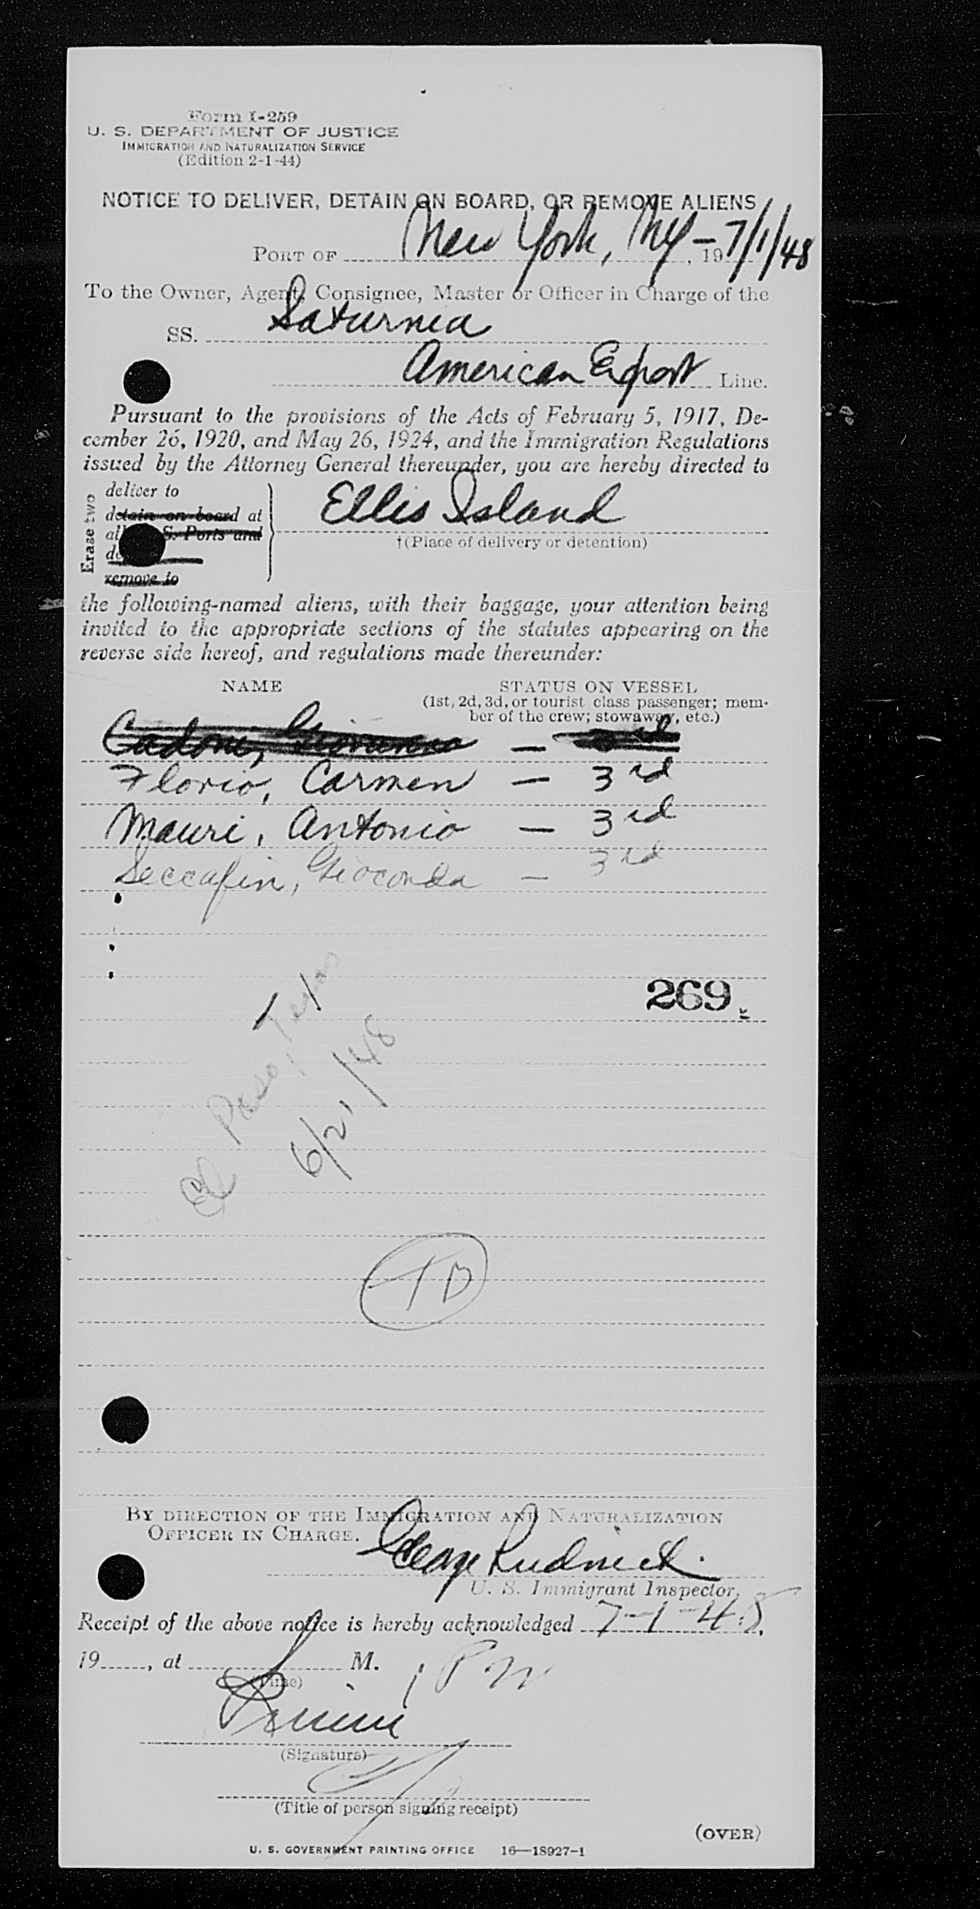 Form I-259
U. S. DEPARTMENT OF JUSTICE
IMMIGRATION AND NATURALIZATION SERVICE
(Edition 2-1-44)
NOTICE TO DELIVER, DETAIN ON BOARD, OR REMOVE ALIENS
PORT OF New York, NY - , 19 7/1/48
To the Owner, Agent, Consignee, Master or Officer in Charge of the
SS. Saturnia
American Export Line.
Pursuant to the provisions of the Acts of February 5, 1917, De-
cember 26, 1920, and May 26, 1924, and the Immigration Regulations
issued by the Attorney General thereunder, you are hereby directed to
Erase two
deliver to
detain on board at
all S. Ports and
remove to
Ellis Island
†(Place of delivery or detention)
the following-named aliens, with their baggage, your attention being
invited to the appropriate sections of the statutes appearing on the
reverse side hereof, and regulations made thereunder:
NAME STATUS ON VESSEL
(1st, 2d, 3d, or tourist class passenger; mem-
ber of the crew; stowaway, etc.)
Cadoni, Giovanna - 3rd
Florio, Carmen - 3rd
Mauri, Antonio - 3rd
Seccafin, Gioconda - 3rd
269
El Paso, Texas
6/21/48
TD
BY DIRECTION OF THE IMMIGRATION AND NATURALIZATION
OFFICER IN CHARGE.
George Rudnick
U. S. Immigrant Inspector.
Receipt of the above notice is hereby acknowledged 7-1-48,
19 , at M. 1 Pm
(Time)
(Signature)
(Title of person signing receipt)
(OVER)
U. S. GOVERNMENT PRINTING OFFICE 16—18927-1